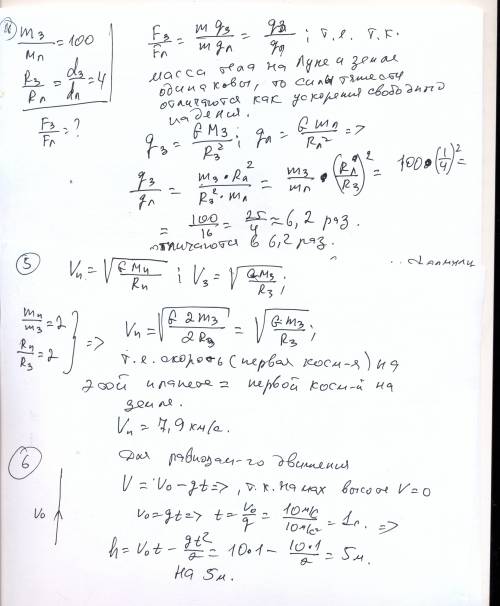 4) m₃/mл = 100
R₃/Rл = d₃/dл = 4
F₃/Fл = ?
F₃/Fл = m g₃/m gл = g₃/gл ; т.е. т.к.
масса тела на Луне и земле
одинаковы, то силы тяжести
отличаются как ускорения свободного
падения.
g₃ = G M₃/R₃² ; gл = G mл/Rл² =>
g₃/gл = m₃ · Rл²/R₃² · mл = m₃/mл · (Rл/R₃)² = 100 · (1/4)² =
= 100/16 = 25/4 ≈ 6,2 раз.
отличаются в 6,2 раз.
5) Vп = √(G Mп/Rп) ; V₃ = √(G M₃/R₃) ;
mп/m₃ = 2
Rп/R₃ = 2 } => Vп = √(G 2 m₃/2 R₃) = √(G m₃/R₃) ;
т.е. скорость (первая косм-я) на
этой планете = первой косм-й на
земле.
Vп = 7,9 км/с.
6) Для равнозам-го движения
V = V₀ - gt => , т.к. на мах высоте V = 0
V₀
v₀ = gt => t = v₀/g = 10 м/с/10 м/с² = 1 с. =>
h = v₀t - gt²/2 = 10·1 - 10·1/2 = 5 м.
на 5 м.